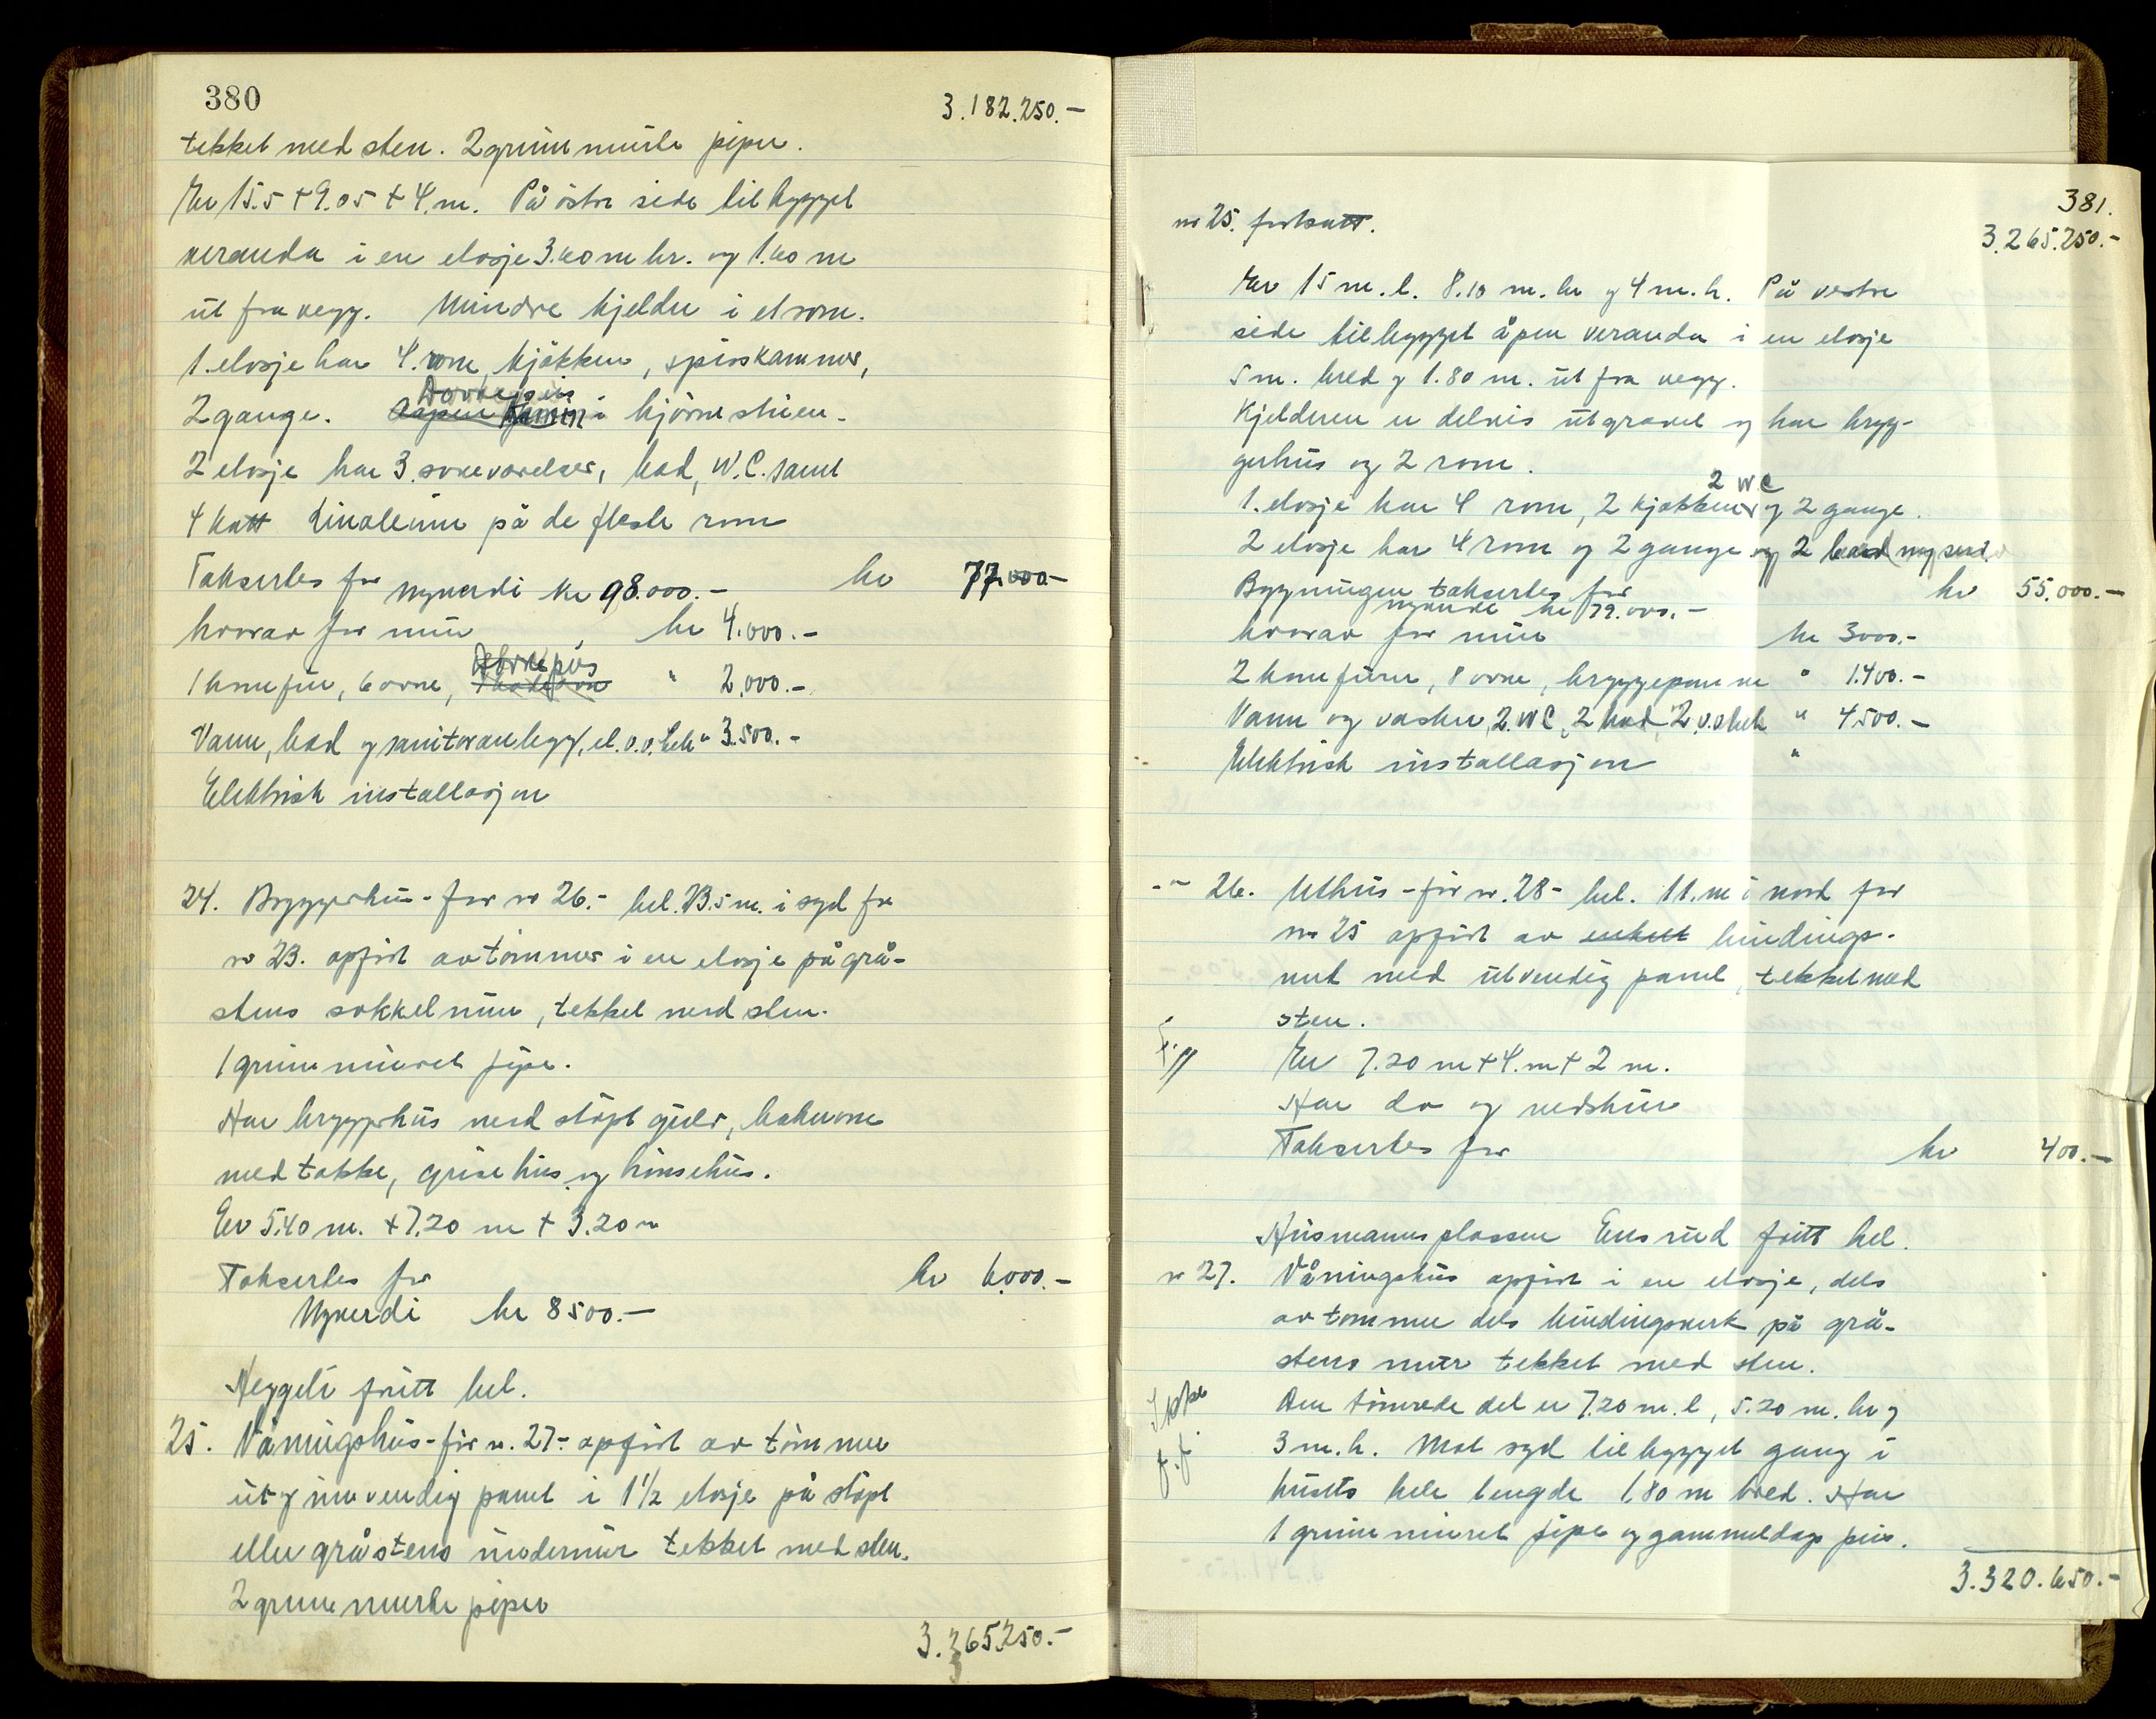 380
3.182.250.-
tekket med sten. 2 grunnmurte piper.
Er 15.5 + 9.05 + 4. m. På östre side tilbygget
veranda i en etasje 3.60 m br. og 1.60 m
ut fra vegg. Mindre kjelder i et rom.
1. etasje har 4. rom, kjökken, spisskammer,
Dovrepeis
2 gange. Aapen Kamin i hjörnestuen.
2 etasje har 3. soveværelser, bad, W.C. samt
4 kott Linoleum på de fleste rom
Takseres for nyverdi kr 98.000.- kr 77.000-
hvorav for mur kr 4.000.-
Dovrepeis
1 komfur, 6 ovne, " 2.000.-
Vann, bad og sanitæranlegg, el. v.v. beh " 3.500.-
Elektrisk installasjon
24. Bryggerhus - før nr 26.- bel. 23.5 m. i syd for
nr 23. opfört av tömmer i en etasje på grå-
stens sokkelmur, tekket med sten.
1 grunnmuret pipe.
Har bryggerhus med stöpt gulv, bakerovn
med takke, grisehus og hönsehus.
Er 5.40 m. + 7.20 m + 3.20 m
Takseres for kr 6.000.-
Nyverdi kr 8500.-
Heggeli fritt bel.
25. Våningshus - før nr. 27.- opfört av tömmer
ut og innvendig panel i 1 1/2 etasje på stöpt
eller gråstens undermur tekket med sten.
2 grunnmurte piper
3.265.250.-
3
381.
nr 25. fortsatt.
3.265.250.-
Er 15 m. l. 8.10 m. br og 4 m. h. På vestre
side tilbygget åpen veranda i en etasje
5 m. bred og 1.80 m. ut fra vegg.
Kjelderen er delvis utgravet og har bryg-
gerhus og 2 rom.
2 WC
1. etasje har 4 rom, 2 kjøkkener og 2 gange.
2 etasje har 4 rom og 2 gange og 2 bad
Bygningen takseres for kr 55.000.-
nyverdi kr 79.000.-
hvorav for mur kr 3000.-
2 komfurer, 8 ovne, bryggepanne " 1.400.-
Vann og vasker, 2. WC, 2 bad, 2 v.v beh " 4.500.-
Elektrisk installasjon "
-"- 26. Uthus - før nr. 28 - bel. 11. m i nord for
nr 25 opfört av enkelt bindings-
verk med utvendig panel, tekket med
sten.
Er 7.20 m + 4. m + 2 m.
Har do og vedskur
Takseres for kr 400.-
Husmannsplassen Ensrud fritt bel.
nr 27. Våningshus opfört i en etasje, dels
av tömmer dels bindingsverk på grå-
stens mur tekket med sten.
Ikke
f.f.
Den tömrede del er 7.20 m. l, 5.20 m. br og
3 m. h. Mot syd tilbygget gang i
husets hele lengde 1.80 m bred. Har
1 grunnmuret pipe og gammeldags peis.
3.320.650.-